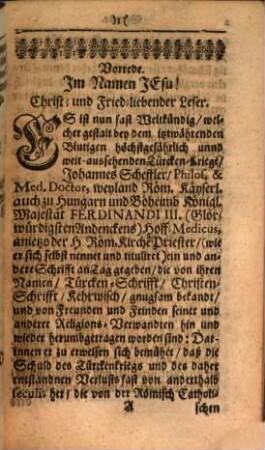 Vorrede.
Im Namen JEsu!
Christ- und Fried-liebender Leser.
ES ist nun fast Weltkündig/ wel-
cher gestalt bey dem itztwährenden
Blutigen höchstgefährlich unnd
weit-aussehenden Türcken-Kriege/
Johannes Scheffler/ Philos. &
Med. Doctor, weyland Röm. Käyserl.
auch zu Hungarn und Böheimb Königl.
Majestät FERDINANDI III. (Glor-
würdigsten Andenckens) Hoff-Medicus,
anietzo der H. Röm. Kirche Priester/ (wie
er sich selbst nennet und tituliret) ein und an-
dere Schrifft an Tag gegeben/ die von ihren
Namen/ Türcken-Schrifft/ Christen-
Schrifft/ Kehrwisch/ gnugsam bekandt/
und von Freunden und Feinden seiner und
anderer Religions-Verwandten hin und
wieder herumbgetragen worden sind: Dar-
innen er zu erweisen sich bemühet/ daß die
Schuld des Türckenkriegs und des daher
entstandnen Verlusts fast von anderthalb
seculis her/ die von der Römisch Catholi-
A schen